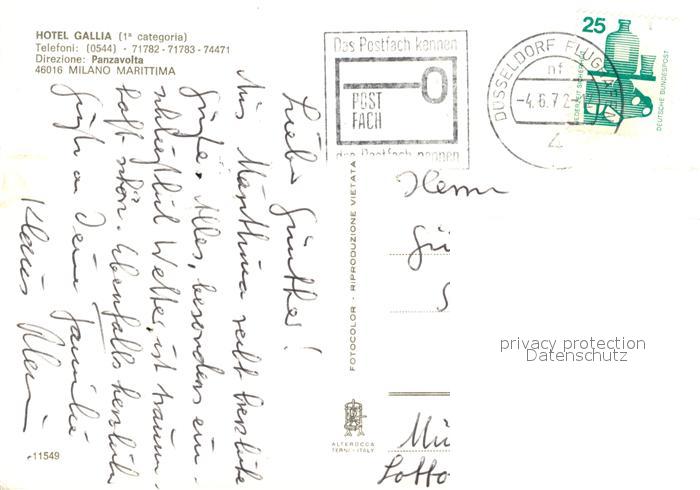 HOTEL GALLIA (1ª categoria)
Telefoni: (0544) - 71782 - 71783 - 74471
Direzione: Panzavolta
46016 MILANO MARITTIMA
Lieber Günther!
Aus Maritima recht herzliche
Grüße. Alles, besonders ein-
schließlich Wetter, ist traum-
haft schön. Ebenfalls herzliche
Grüße an Deine Familie
Klaus
-11549
FOTOCOLOR - RIPRODUZIONE VIETATA
ALTEROCCA
TERNI - ITALY
Das Postfach kennen
POST
FACH
das Postfach nennen
DÜSSELDORF FLUGH
nf
-4.6.72-
25
JEDERZEIT SICHERHEIT
DEUTSCHE BUNDESPOST
Herrn
Gü
Mü
Lotto
privacy protection
Datenschutz